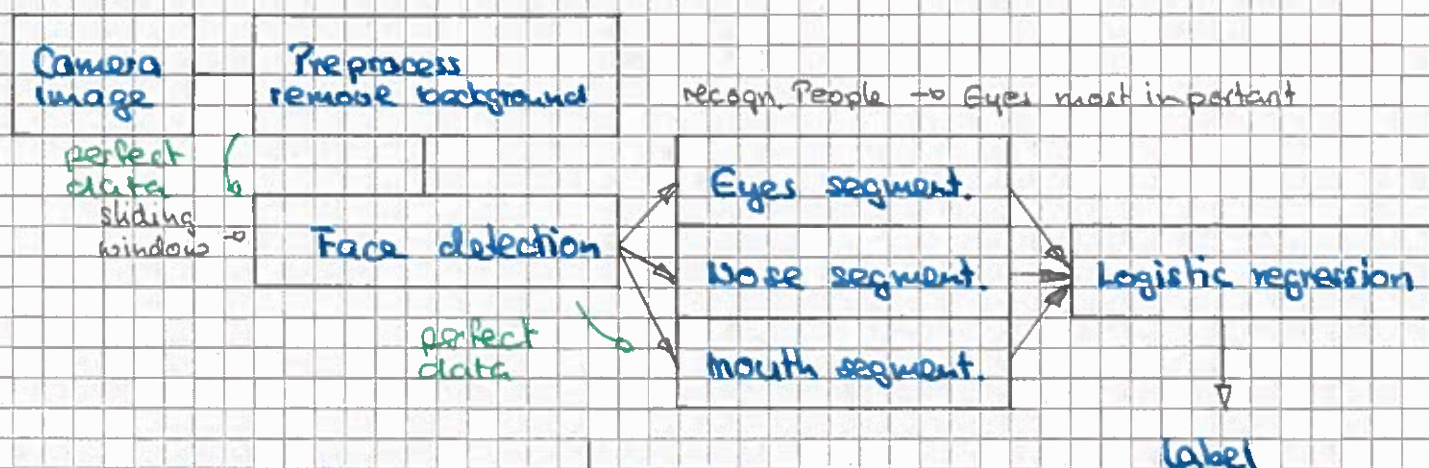 Camera
Image
Preprocess
remove background
recogn. People → Eyes most important
perfect
data
sliding
window →
Face detection
Eyes segment.
Nose segment.
Mouth segment.
Logistic regression
perfect
data
label